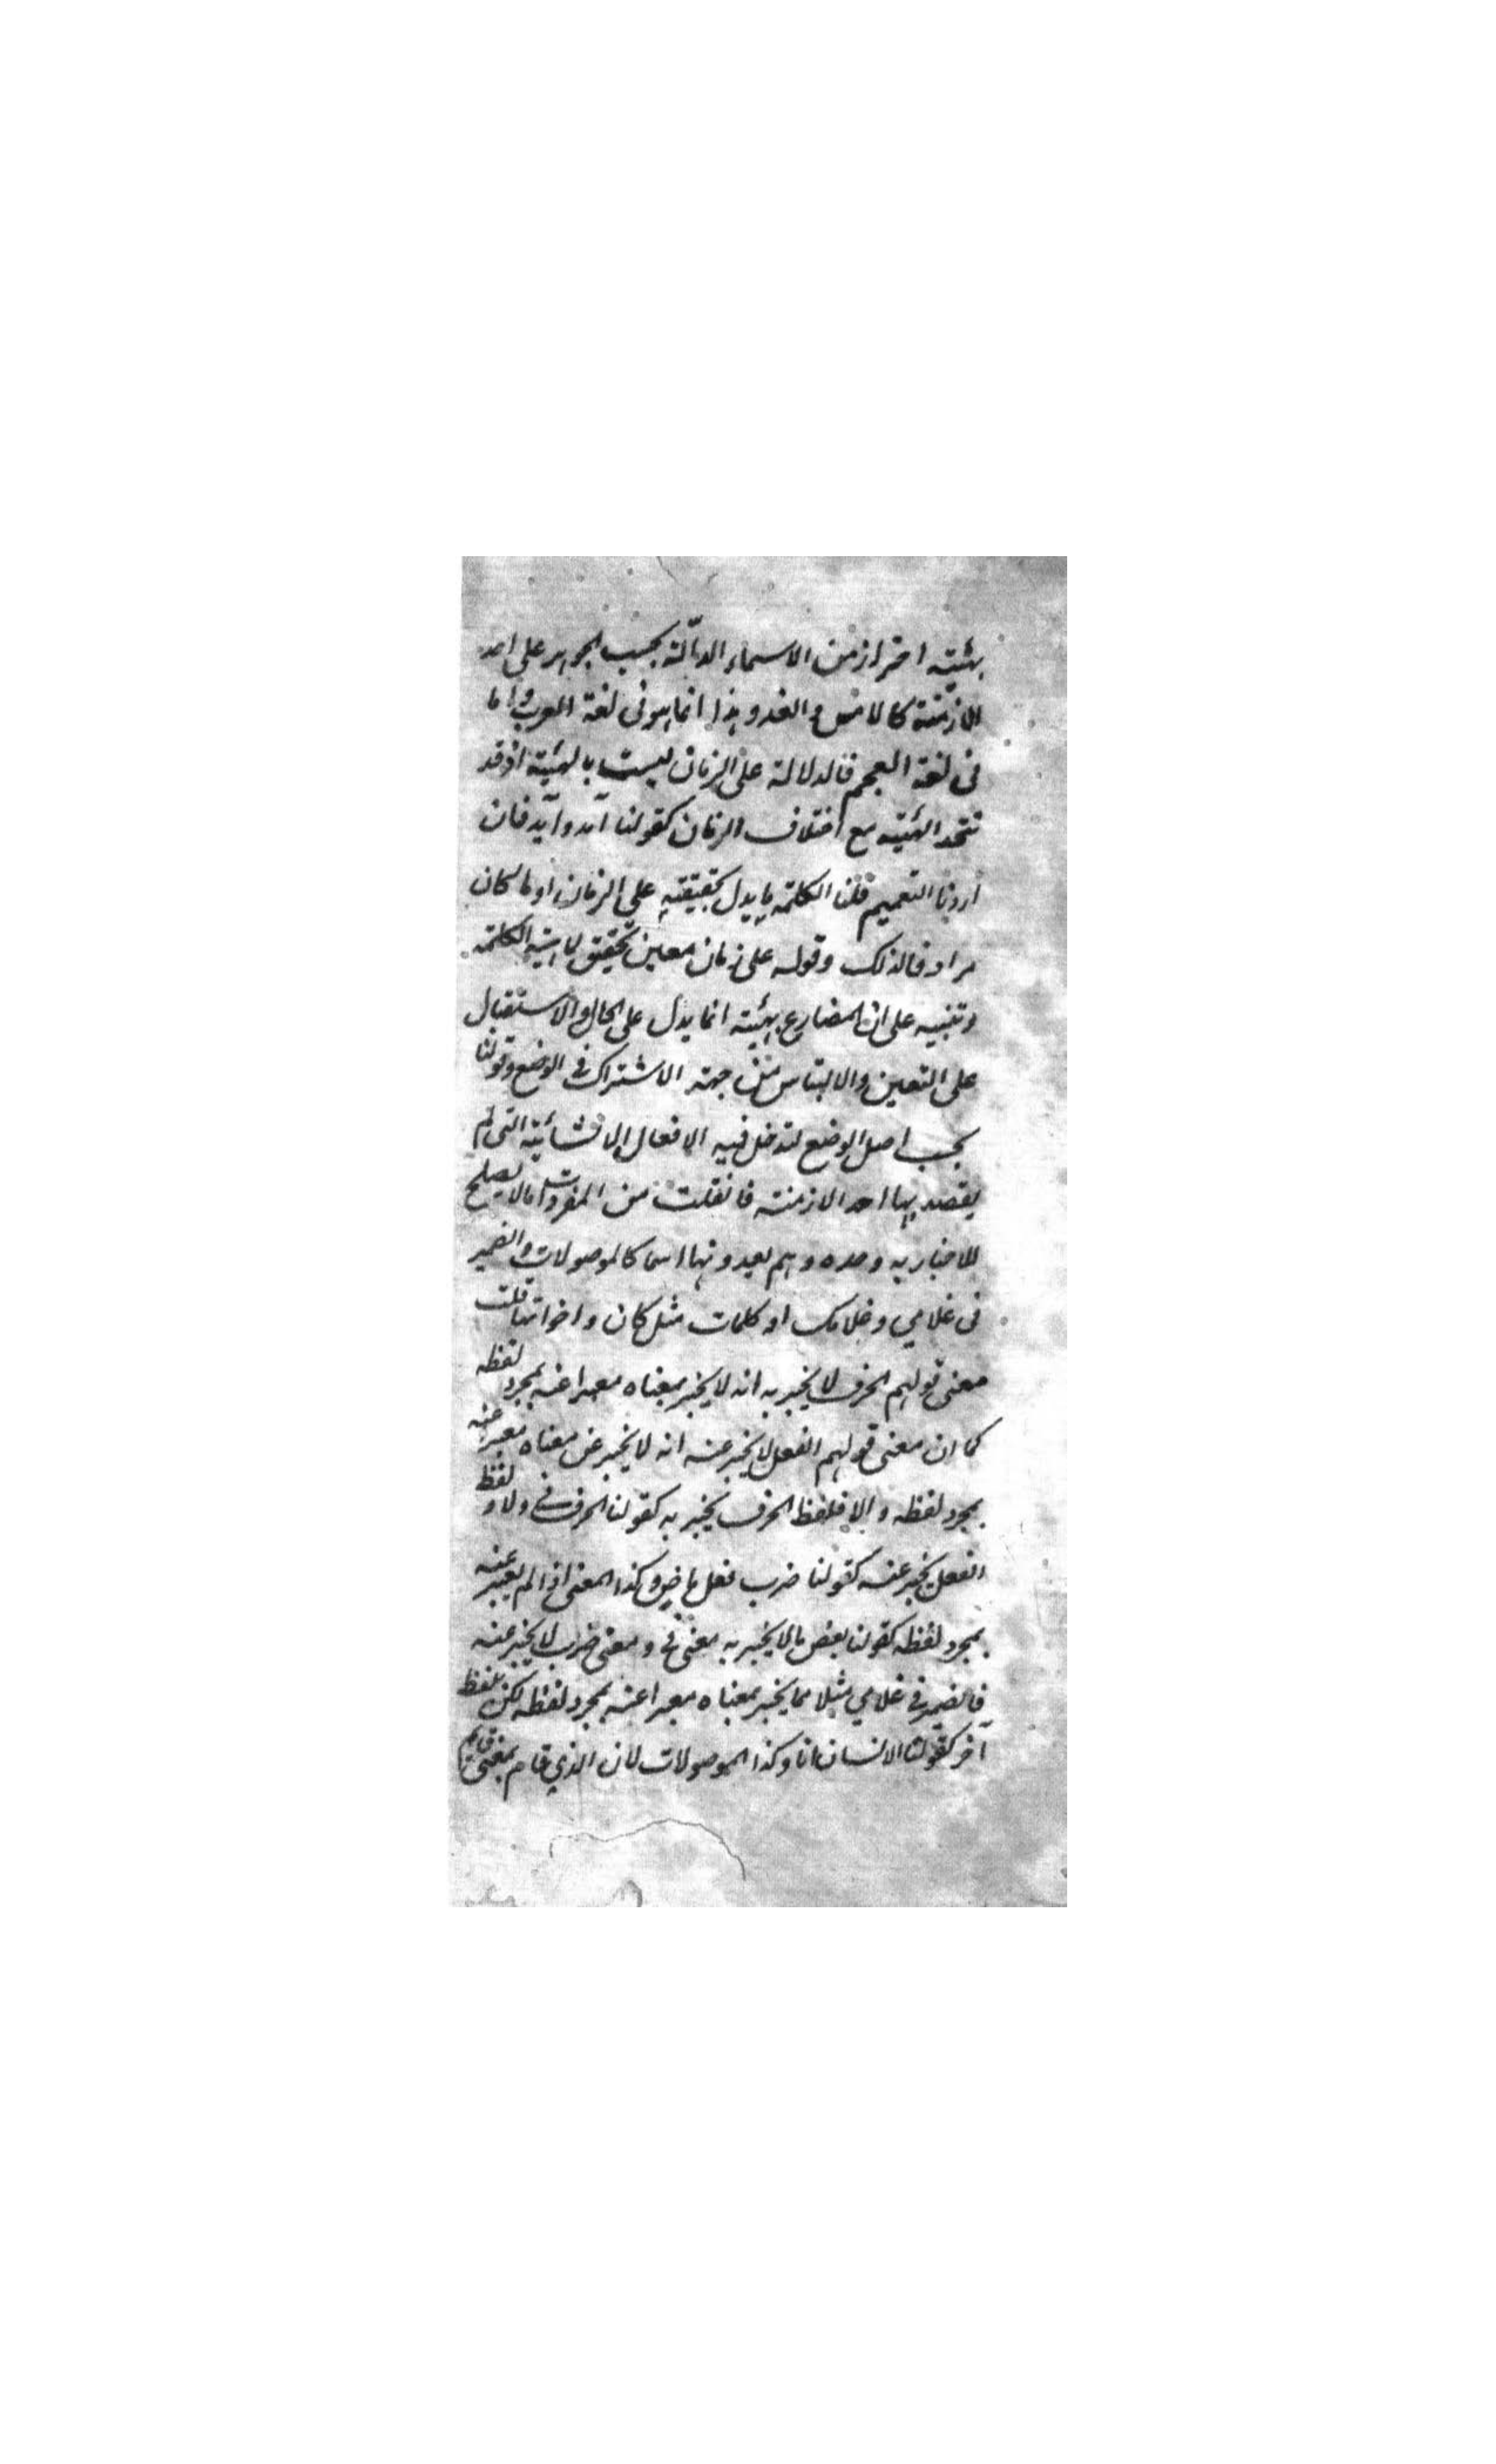 بهئيته احتراز من الاسماء الدالّة بحسب الجوهر على احد
الازمنة كالامس والغد وهذا انما هو فى لغة العرب واما
فى لغة العجم فالدلالة على الزمان ليست بالهيئة اذ قد
تتحد الهيئة مع اختلاف الزمان كقولنا آمد وآيد فان
اردنا التعميم قلنا الكلمة ما يدل بحقيقته على الزمان او ما كان
مرادفا لذلك وقوله على زمان معين تحقيق لماهية الكلمة
وتنبيه على ان المضارع بهيئته انما يدل على الحال والاستقبال
على التعين والالتباس من جهة الاشتراك فى الوضع وقولنا
بحسب اصل الوضع لتدخل فيه الافعال الانشائية التى لم
يقصد بها احد الازمنة فان قلت من المفردات ما لا يصلح
للاخبار به وحده وهم يعدونها اسما كالموصولات والضمير
فى غلامي وغلامك او كلمات مثل كان واخواتها قلت
معنى قولهم الحرف لا يخبر به انه لا يخبر بمعناه معبرا عنه بمجرد لفظه
كما ان معنى قولهم الفعل لا يخبر عنه انه لا يخبر عن معناه معبرا عنه
بمجرد لفظه والا فلفظ الحرف يخبر به كقولنا الحرف فى ولا ولفظ
الفعل يخبر عنه كقولنا ضرب فعل ماض وكذا المعنى اذا لم يعبر عنه
بمجرد لفظه كقولنا بعض ما لا يخبر به معنى فى ومعنى ضرب لا يخبر عنه
فالضمير فى غلامي مثلا مما يخبر بمعناه معبرا عنه بمجرد لفظه لكن بلفظ
آخر كقولنا الانسان انا وكذا الموصولات لان الذي قام بمعنى قائم